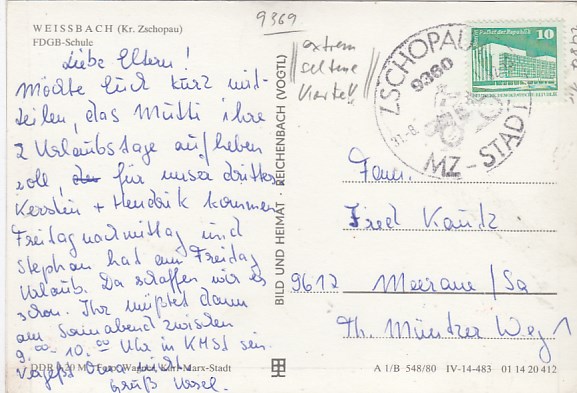 9369
WEISSBACH (Kr. Zschopau)
FDGB-Schule
Liebe Eltern!
Möchte Euch kurz mit-
teilen, das Mutti ihre
2 Urlaubstage aufheben
soll, für unser dritter
Kerstin + Hendrik kommen
Freitag nachmittag und
Stephan hat am Freitag
Urlaub. Da schaffen wir es
schon. Ihr müßtet dann
am Sonnabend zwischen
9.00 - 10.00 Uhr in KMSt sein.
Vergeßt Oma nicht
Gruß
DDR 0,20 M Foto: Wagner, Karl-Marx-Stadt
BILD UND HEIMAT REICHENBACH (VOGTL)
extrem
seltene
Karte!!
ZSCHOPAU
9360
31.-8.
MZ-STADT
10
Palast der Republik
DEUTSCHE DEMOKRATISCHE REPUBLIK
Fam.
Fred Kautz
9612 Meerane/Sa
Th. Müntzer Weg 1
A 1/B 548/80 IV-14-483 01 14 20 412